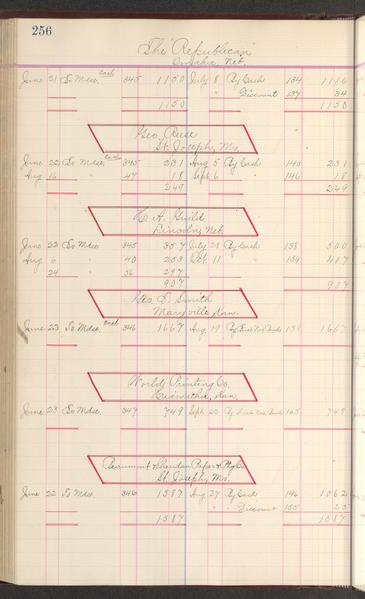 256
The "Republican"
Omaha, Neb.
June 21 To Mdse. Cash 345 1150 July 8 By Cash 134 1116
" Discount 137 34
1150 1150
Geo. Reese
St. Joseph, Mo.
June 22 To Mdse. 345 231 Aug 5 By Cash 140 231
Aug 16 " 47 18 Sept 6 " 146 18
249 249
H. A. Guild
Lincoln, Neb.
June 22 To Mdse. 345 357 July 28 By Cash 138 500
Aug 6 " 40 253 Oct. 11 " 154 407
24 " 56 297
907 907
Geo. D. Smith
Marysville, Kan.
June 23 To Mdse. Cash 346 1667 Aug 19 By 1667
World Printing Co.
Hiawatha, Kan.
June 23 To Mdse. 347 749 Sept. 749
Beaumont & Sheridan Paper &
St. Joseph, Mo.
June 22 To Mdse. 346 1587 Aug 27 By Cash 146 1062
" " Discount 155 25
1587 1587